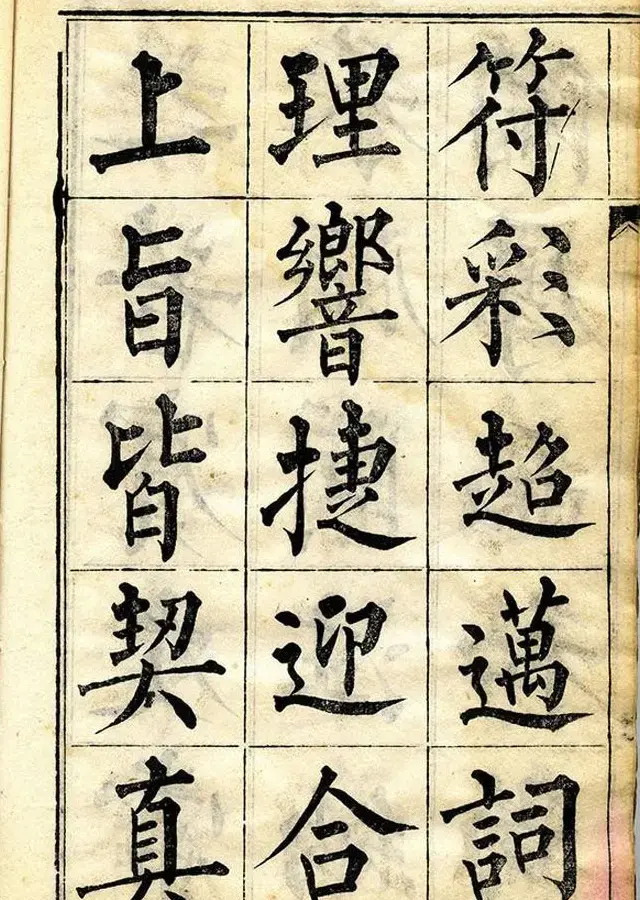 符彩超邁詞
理響捷迎合
上旨皆契真